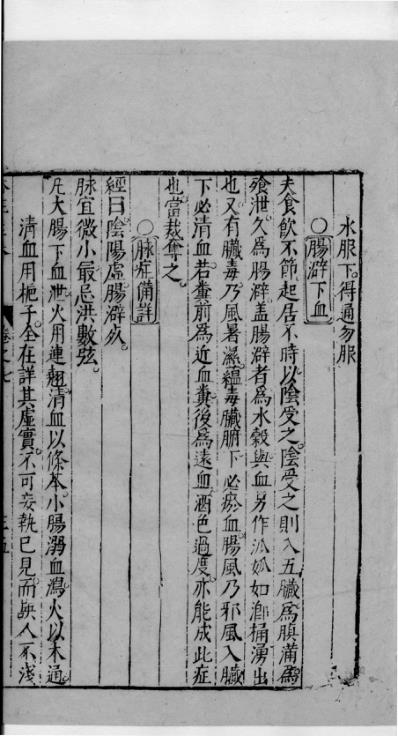 水服下。得通勿服
○腸澼下血
夫食飲不節起居不時以陰受之。陰受之則入五臟為䐜滿為
飱泄。久為腸澼。盖腸澼者為水穀與血另作一派如㵼桶湧出
也。又有臟毒。乃風暑濕。蘊毒臟腑。下必瘀血。腸風乃邪風入臟
下必清血。若糞前為近血。糞後為遠血。酒色過度。亦能成此症
也。當裁奪之。
○脉症備詳
經曰。陰陽虛腸澼。
脉宜微小。最忌洪數弦。
凡大腸下血。泄火用連翹。清血以條芩。小腸溺血。瀉火以木通。
清血用梔子。全在詳其虛實。不可妄執己見。而悞人不淺
卷之七